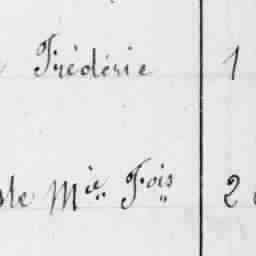 Frédérie 1
Mie Fois 2